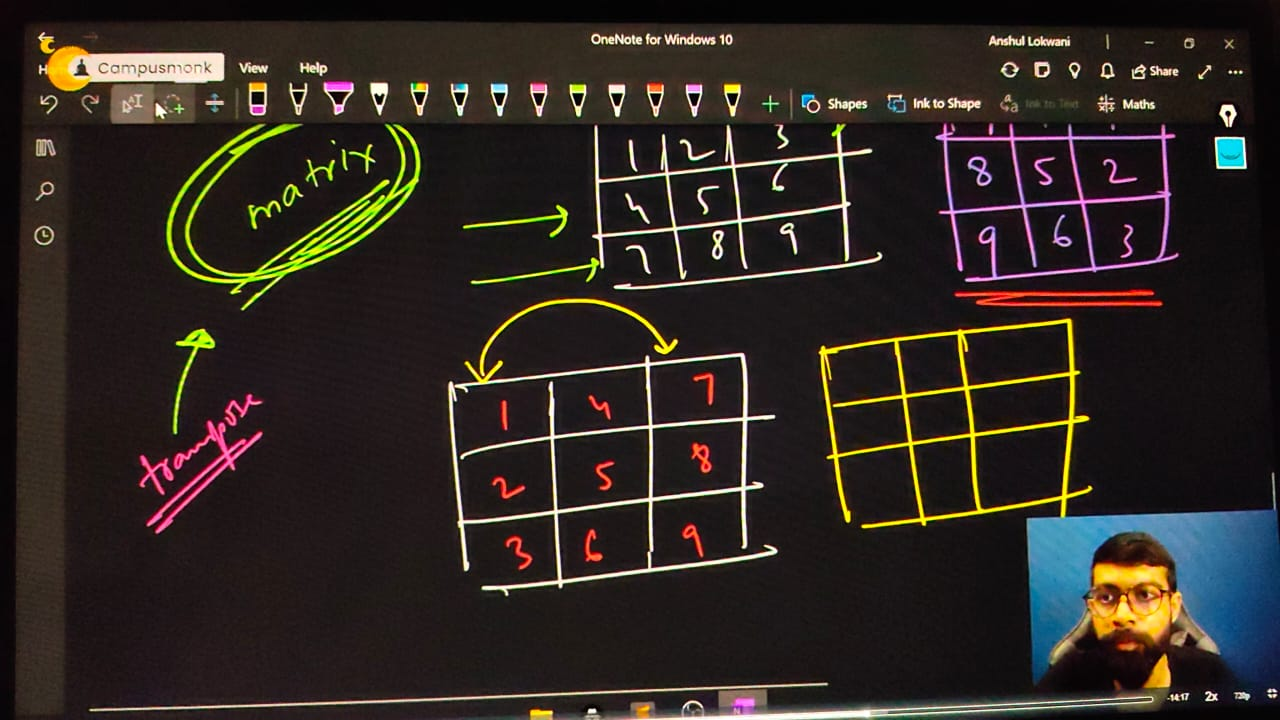 OneNote for Windows 10
Anshul Lokwani
Campusmonk
View
Help
Share
Shapes
Ink to Shape
Ink to Text
Maths
matrix
1 2 3
4 5 6
7 8 9
8 5 2
9 6 3
transpose
1 4 7
2 5 8
3 6 9
-14:17
2x
720p